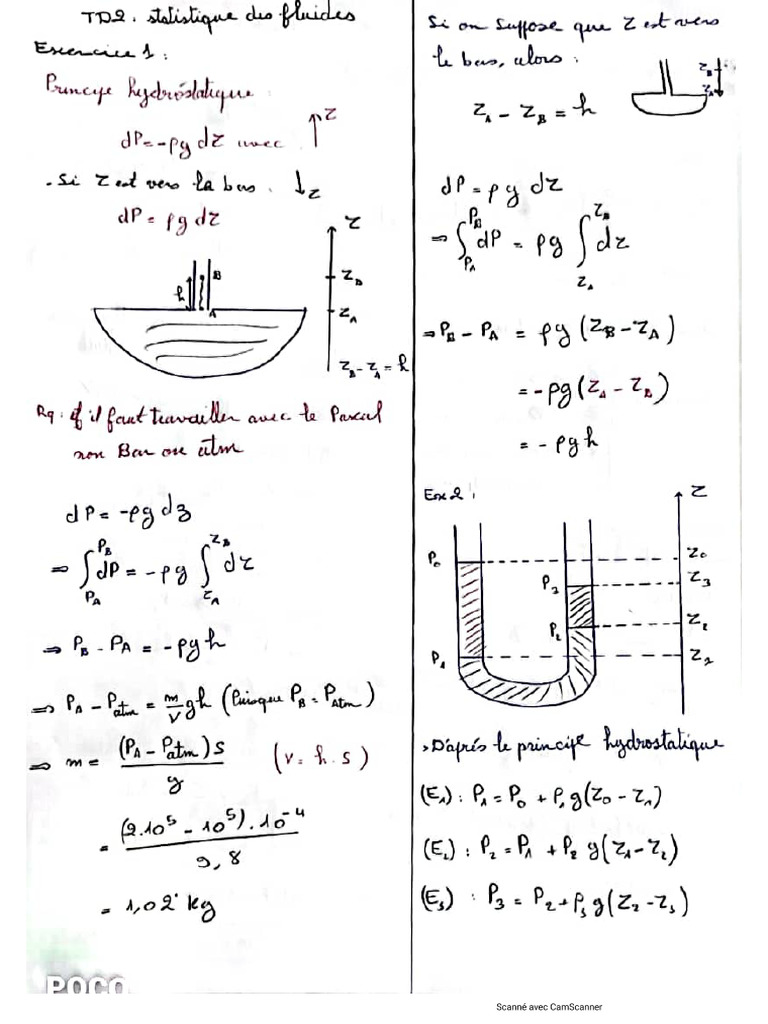 TD2. statistique des fluides
Exercice 1 :
Principe hydrostatique
dP = -ρg dz avec ↑z
. Si z est vers la bas. ↓z
dP = ρg dz
z
B
h
z_B
A
z_A
z_B - z_A = h
Rq : il faut travailler avec le Pascal
non Bar ou atm
dP = -ρg dz
⇒ ∫_{P_A}^{P_B} dP = -ρg ∫_{z_A}^{z_B} dz
⇒ P_B - P_A = -ρgh
⇒ P_A - P_atm = m/v gh (Puisque P_B = P_Atm)
⇒ m = (P_A - P_atm) s / g (v = h.s)
= (2.10^5 - 10^5).10^-4 / 9,8
= 1,02 kg
Si on suppose que z est vers
le bas, alors :
z_B
z_A
z_A - z_B = h
dP = ρg dz
⇒ ∫_{P_A}^{P_B} dP = ρg ∫_{z_A}^{z_B} dz
⇒ P_B - P_A = ρg (z_B - z_A)
= -ρg (z_A - z_B)
= -ρgh
Ex 2 :
z
P_0 z_0
P_3 z_3
P_2 z_2
P_1 z_2
D'après le principe hydrostatique
(E_1) : P_1 = P_0 + ρ_1 g(z_0 - z_1)
(E_2) : P_2 = P_1 + ρ_2 g(z_1 - z_2)
(E_3) : P_3 = P_2 + ρ_3 g(z_2 - z_3)
POCO
Scanné avec CamScanner